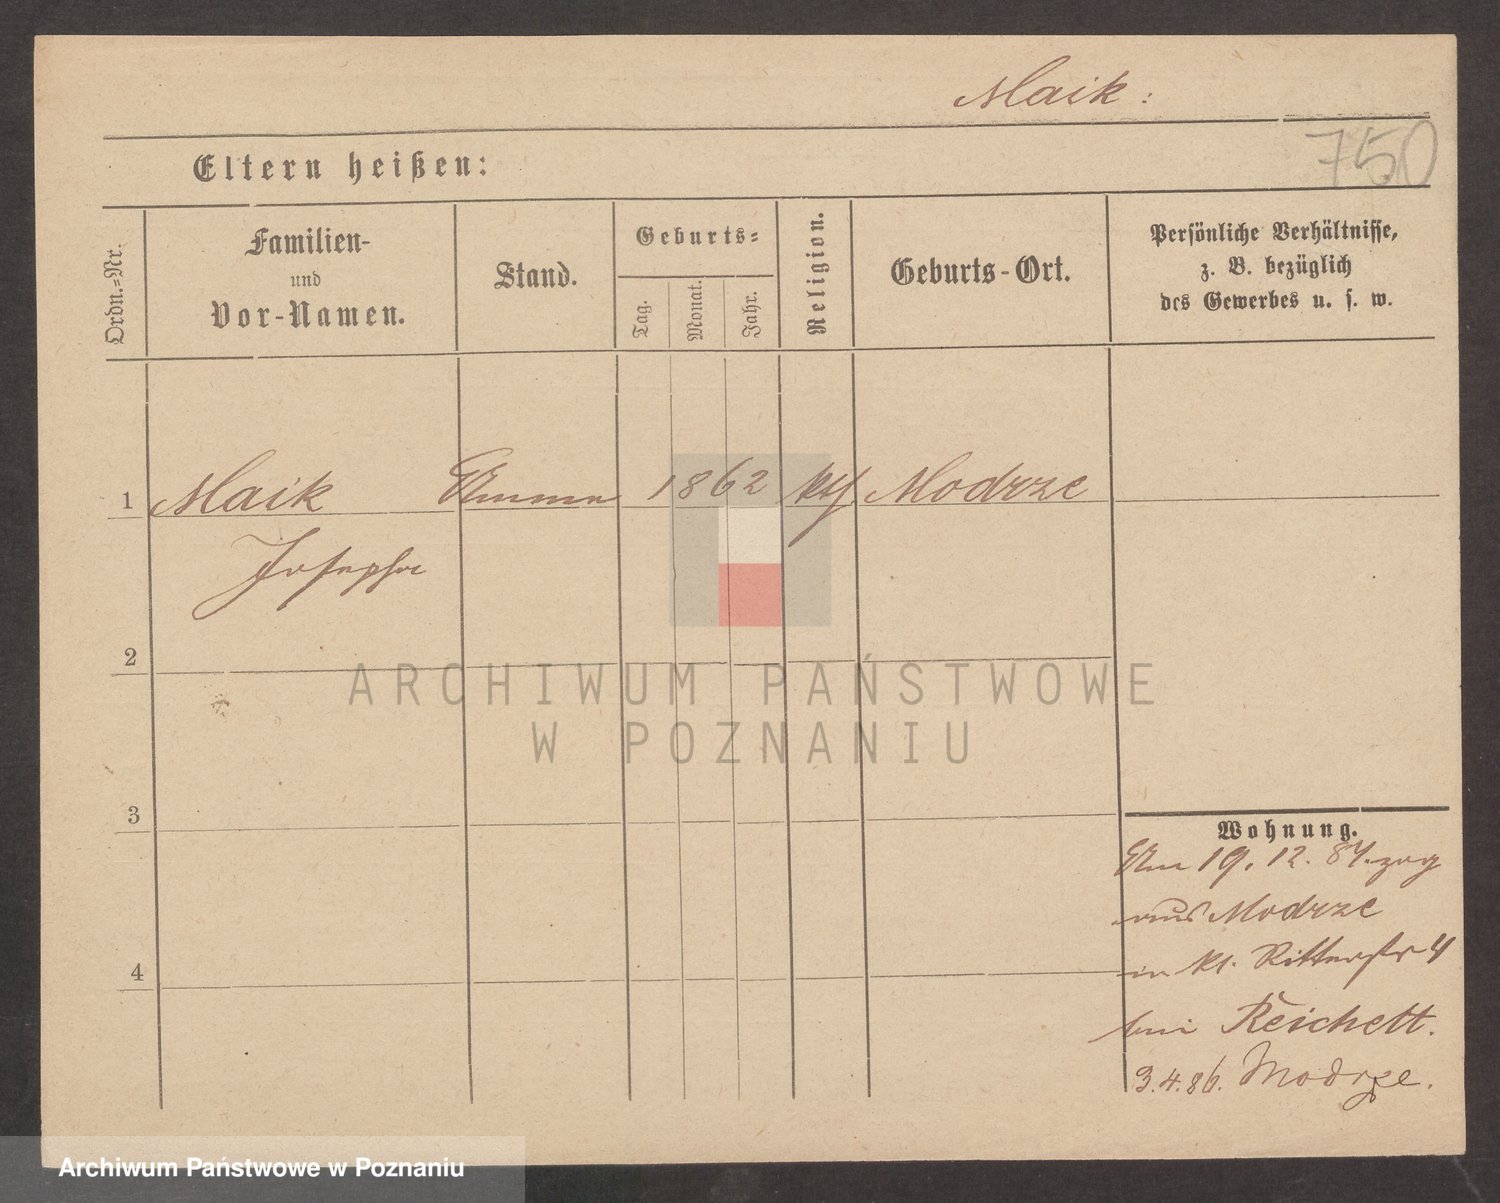 Maik:
750
Eltern heißen:
Ordn.-Nr.
Familien-
und
Vor-Namen.
Stand.
Geburts-
Tag.
Monat.
Jahr.
Religion.
Geburts-Ort.
Persönliche Verhältnisse,
z. B. bezüglich
des Gewerbes u. s. w.
1 Maik Amme 1862 kth Modrze
Josepha
2
ARCHIWUM PAŃSTWOWE
W POZNANIU
3
4
Wohnung.
Am 19. 12. 84. zog
aus Modrze
in kl. Ritterstr 4
bei Reichelt.
3.4.86. Modrze.
Archiwum Państwowe w Poznaniu